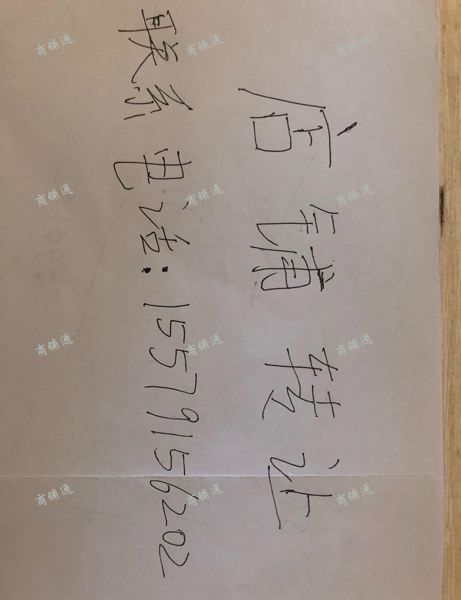 店铺转让
联系电话：15579156202
商铺通 商铺通 商铺通
商铺通 商铺通 商铺通
商铺通 商铺通 商铺通
商铺通 商铺通 商铺通